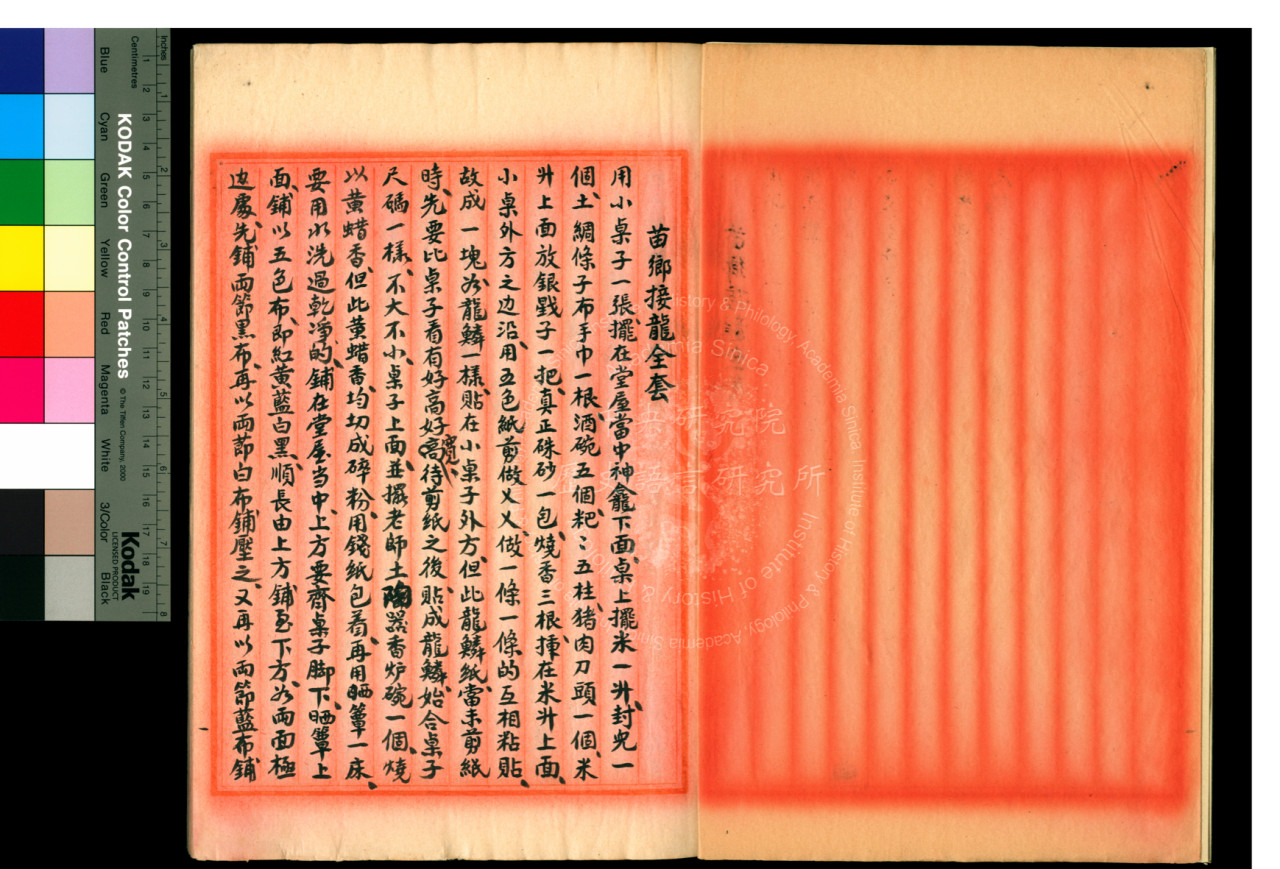 苗鄉接龍全套
用小桌子一張、擺在堂屋當中神龕下面、桌上擺米一升、封児一
個、土綢條子布手巾一根、酒碗五個、粑〻五柱、猪肉刀頭一個、米
升上面放銀戥子一把、真正硃砂一包、燒香三根、揷在米升上面、
小桌外方之边沿、用五色紙剪做乂乂、做一條一條的互相粘貼、
故成一塊、为龍鱗一樣、貼在小桌子外方、但此龍鱗紙、當未剪紙
時、先要比桌子看有好高好寬、待剪紙之後、貼成龍鱗、始合桌子
尺碼一樣、不大不小、桌子上面、並擺老師土陶器香炉碗一個、燒
以黄蜡香、但此黄蜡香、均切成碎粉、用錢紙包着、再用晒簟一床、
要用水洗過乾净的、鋪在堂屋当中、上方要齊桌子脚下、晒簟上
面、鋪以五色布、即紅黄藍白黑、順長由上方鋪至下方、为两面極
边處、先鋪両節黑布、再以両節白布鋪壓之、又再以両節藍布鋪
KODAK Color Control Patches
© The Tiffen Company, 2000
Kodak
LICENSED PRODUCT
Inches
Centimetres
1 2 3 4 5 6 7 8
1 2 3 4 5 6 7 8 9 10 11 12 13 14 15 16 17 18 19
Blue
Cyan
Green
Yellow
Red
Magenta
White
3/Color
Black
歷史語言研究所
Institute of History & Philology, Academia Sinica